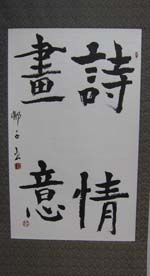 詩情
畫意